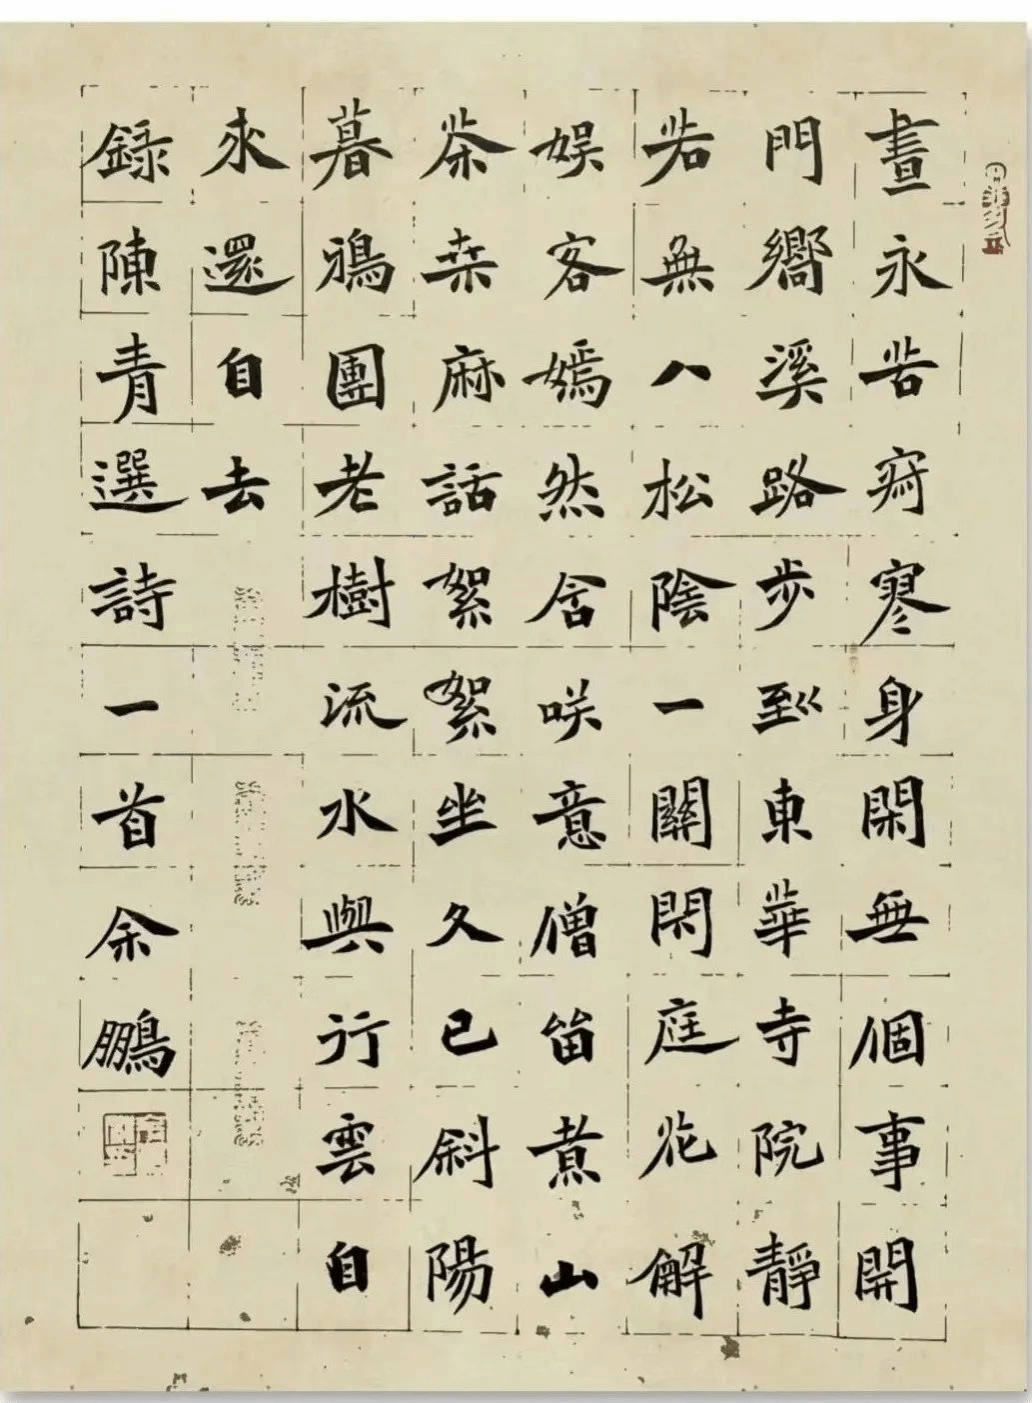 晝永苦寂寥身閑無個事開
門嚮溪路步到東華寺院靜
若無人松陰一關閑庭花解
娛客嫣然含咲意僧留煮山
茶桑麻話絮絮坐久已斜陽
暮鴉團老樹流水與行雲自
來還自去
錄陳青選詩一首余鵬